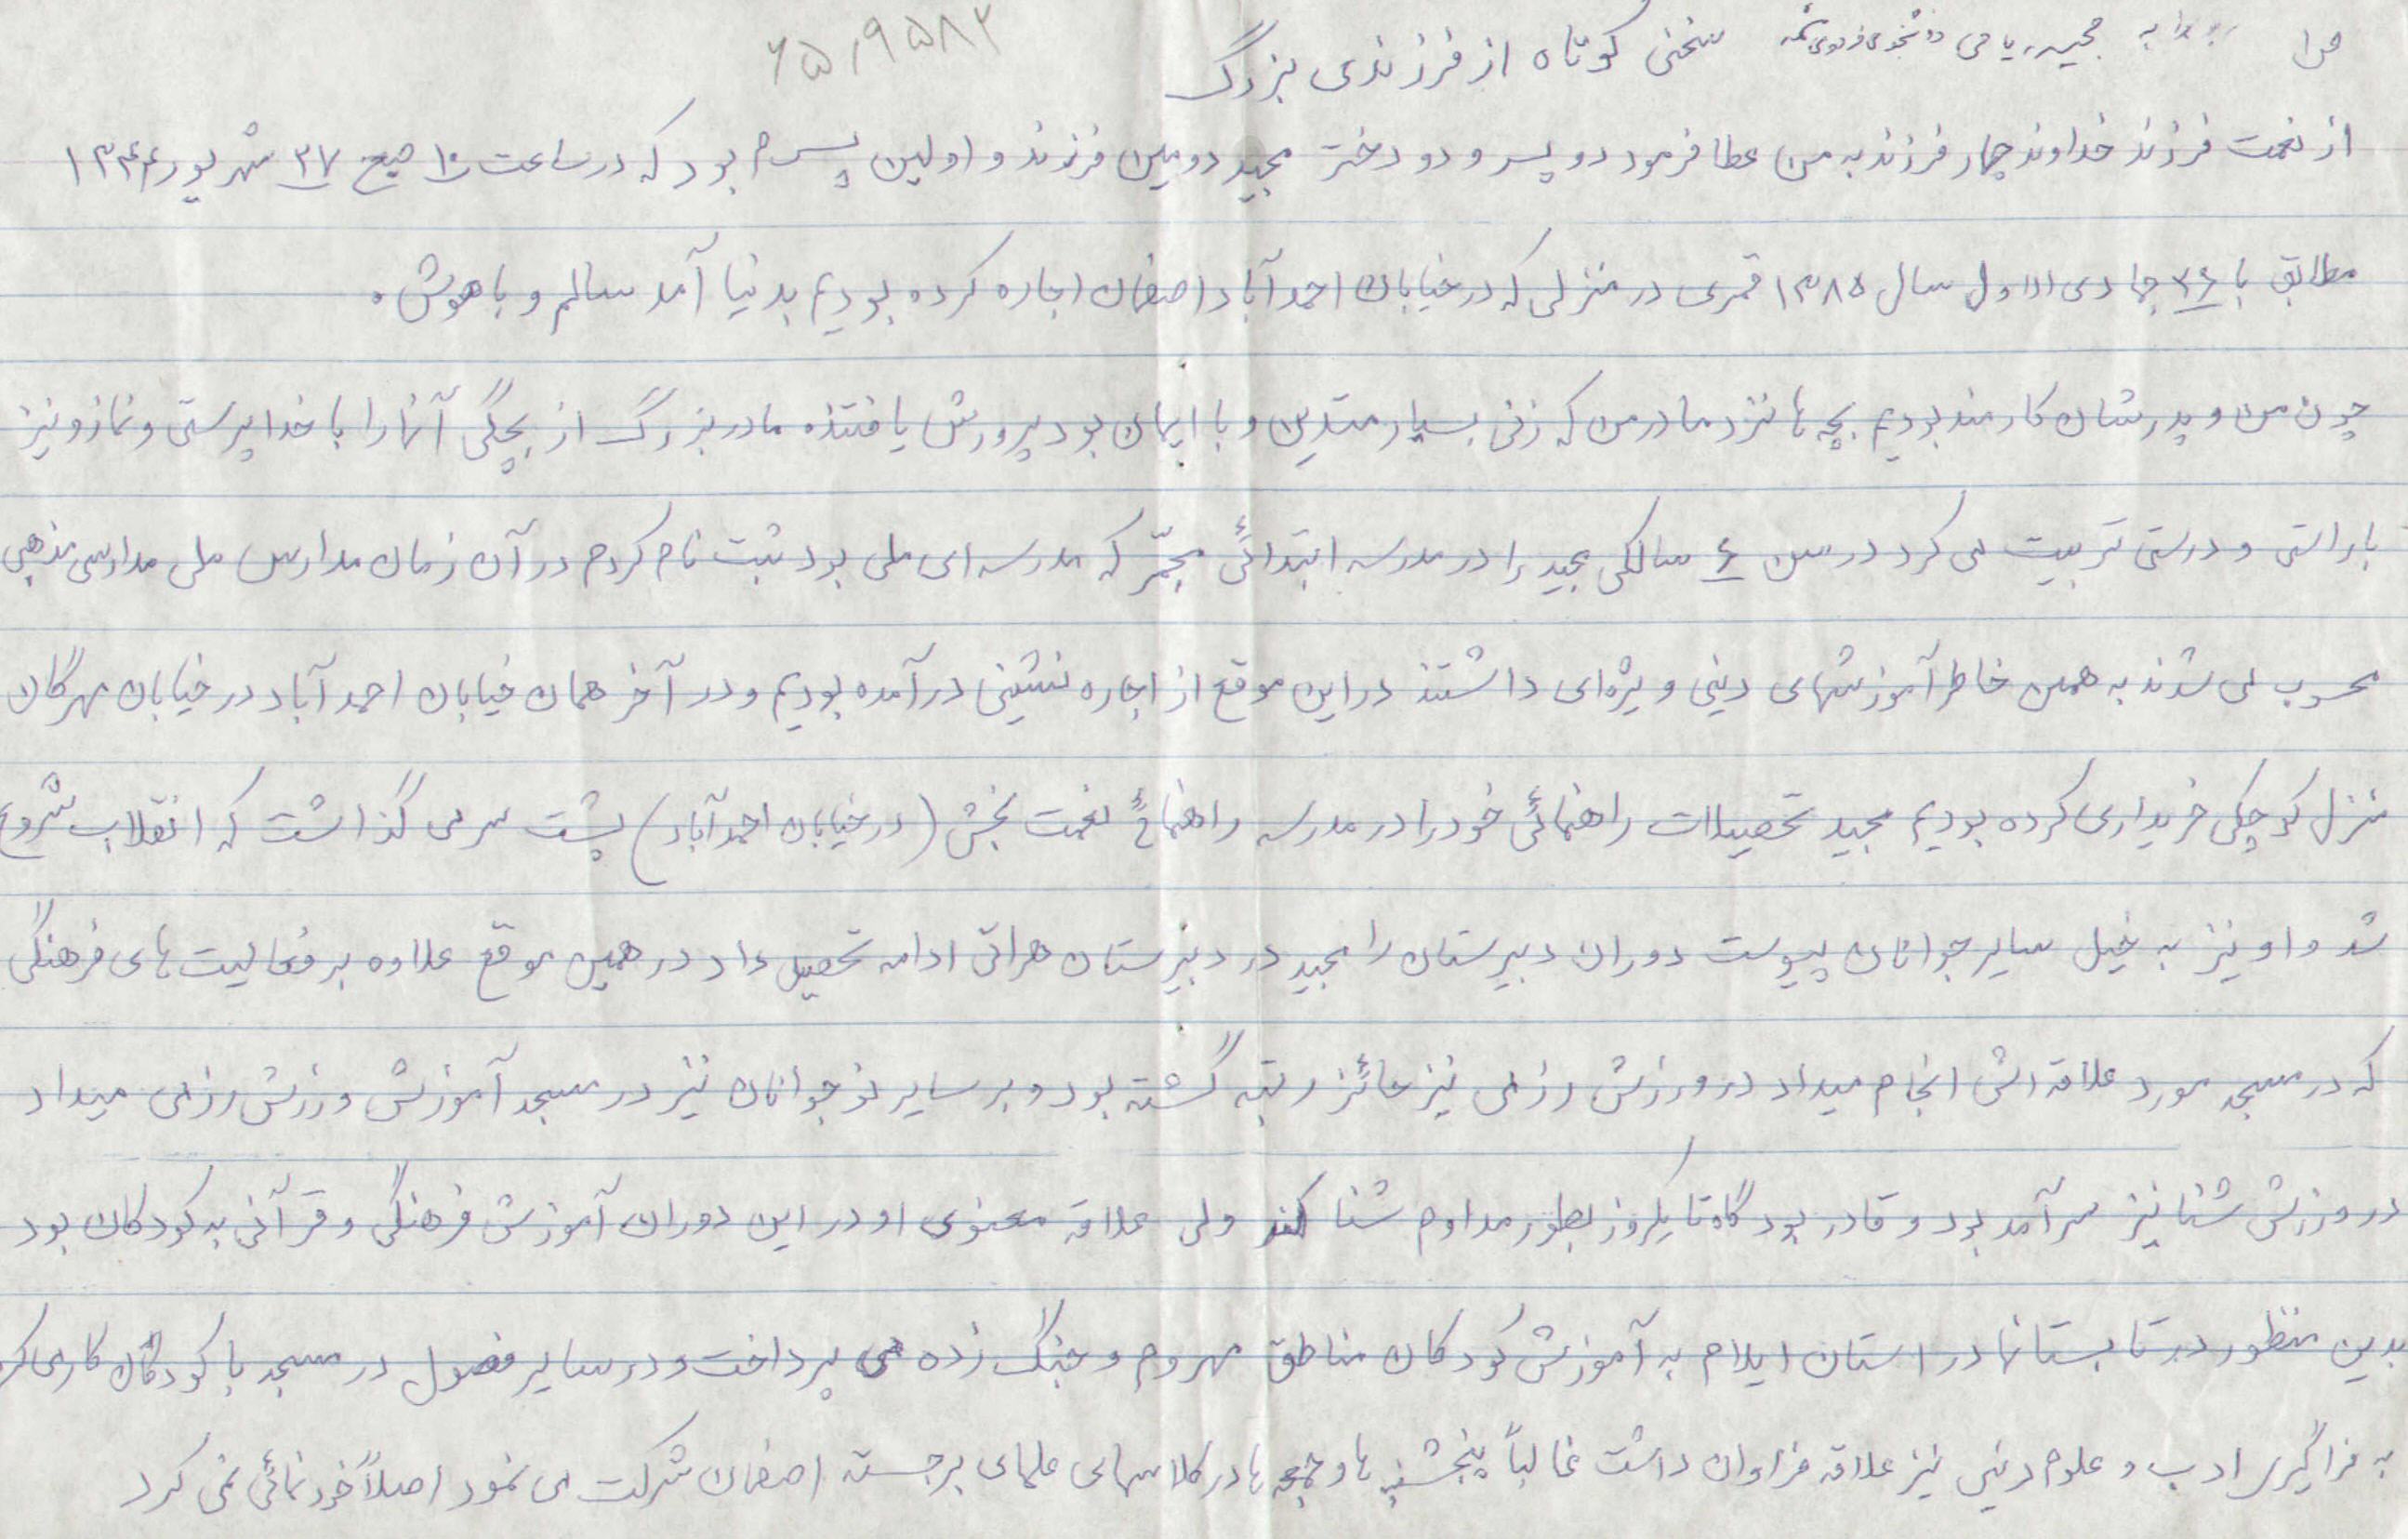 ۶۵۱۹۵۸۲
سخنی کوتاه از فرزندی بزرگ
از نعمت فرزند خداوند چهار فرزند به من عطا فرمود دو پسر و دو دختر مجید دومین فرزند و اولین پسرم بود که در ساعت ۱۰ صبح ۲۷ شهریور ۱۳۴۴
مطابق با ۲۶ جمادی الاول سال ۱۳۸۵ قمری در منزلی که در خیابان احمدآباد اصفهان اجاره کرده بودیم بدنیا آمد سالم و باهوش.
چون من و پدرشان کارمند بودیم بچه ها نزد مادر من که زنی بسیار متدین و با ایمان بود پرورش یافتند مادربزرگ از بچگی آنها را با خداپرستی و نماز و نیز
با راستی و درستی تربیت می کرد در سن ۶ سالگی مجید را در مدرسه ابتدائی مجمّر که مدرسه ای ملی بود ثبت نام کردم در آن زمان مدارس ملی مدارس مذهبی
محسوب می شدند به همین خاطر آموزشهای دینی ویژه ای داشتند در این موقع از اجاره نشینی درآمده بودیم و در آخر همان خیابان احمدآباد در خیابان مهرگان
منزل کوچکی خریداری کرده بودیم مجید تحصیلات راهنمائی خود را در مدرسه راهنمائی نعمت بخش (در خیابان احمدآباد) پشت سر می گذاشت که انقلاب شروع
شد و او نیز به خیل سایر جوانان پیوست دوران دبیرستان را مجید در دبیرستان هراتی ادامه تحصیل داد در همین موقع علاوه بر فعالیت های فرهنگی
که در مسجد مورد علاقه اش انجام میداد در ورزش رزمی نیز حائز رتبه گشته بود و بر سایر نوجوانان نیز در مسجد آموزش ورزش رزمی میداد
در ورزش شنا نیز سرآمد بود و قادر بود گاه تا یکروز بطور مداوم شنا کند ولی علاقه معنوی او در این دوران آموزش فرهنگی و قرآنی به کودکان بود
بدین منظور در تابستانها در استان ایلام به آموزش کودکان مناطق مهروم و جنگ زده می پرداخت و در سایر فصول در مسجد با کودکان کار می کرد
به فراگیری ادب و علوم دینی نیز علاقه فراوان داشت غالباً پنجشنبه ها و جمعه ها در کلاسهای علمای برجسته اصفهان شرکت می نمود اصلاً خودنمائی نمی کرد